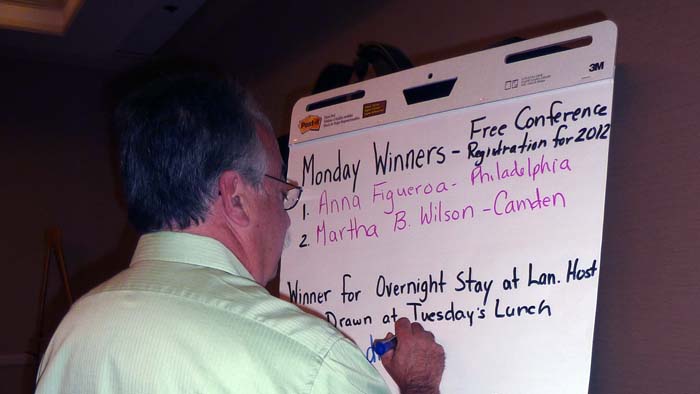 Post-it
3M
Monday Winners - Free Conference
Registration for 2012
1. Anna Figueroa - Philadelphia
2. Martha B. Wilson - Camden
Winner for Overnight Stay at Lan. Host
Drawn at Tuesday's Lunch